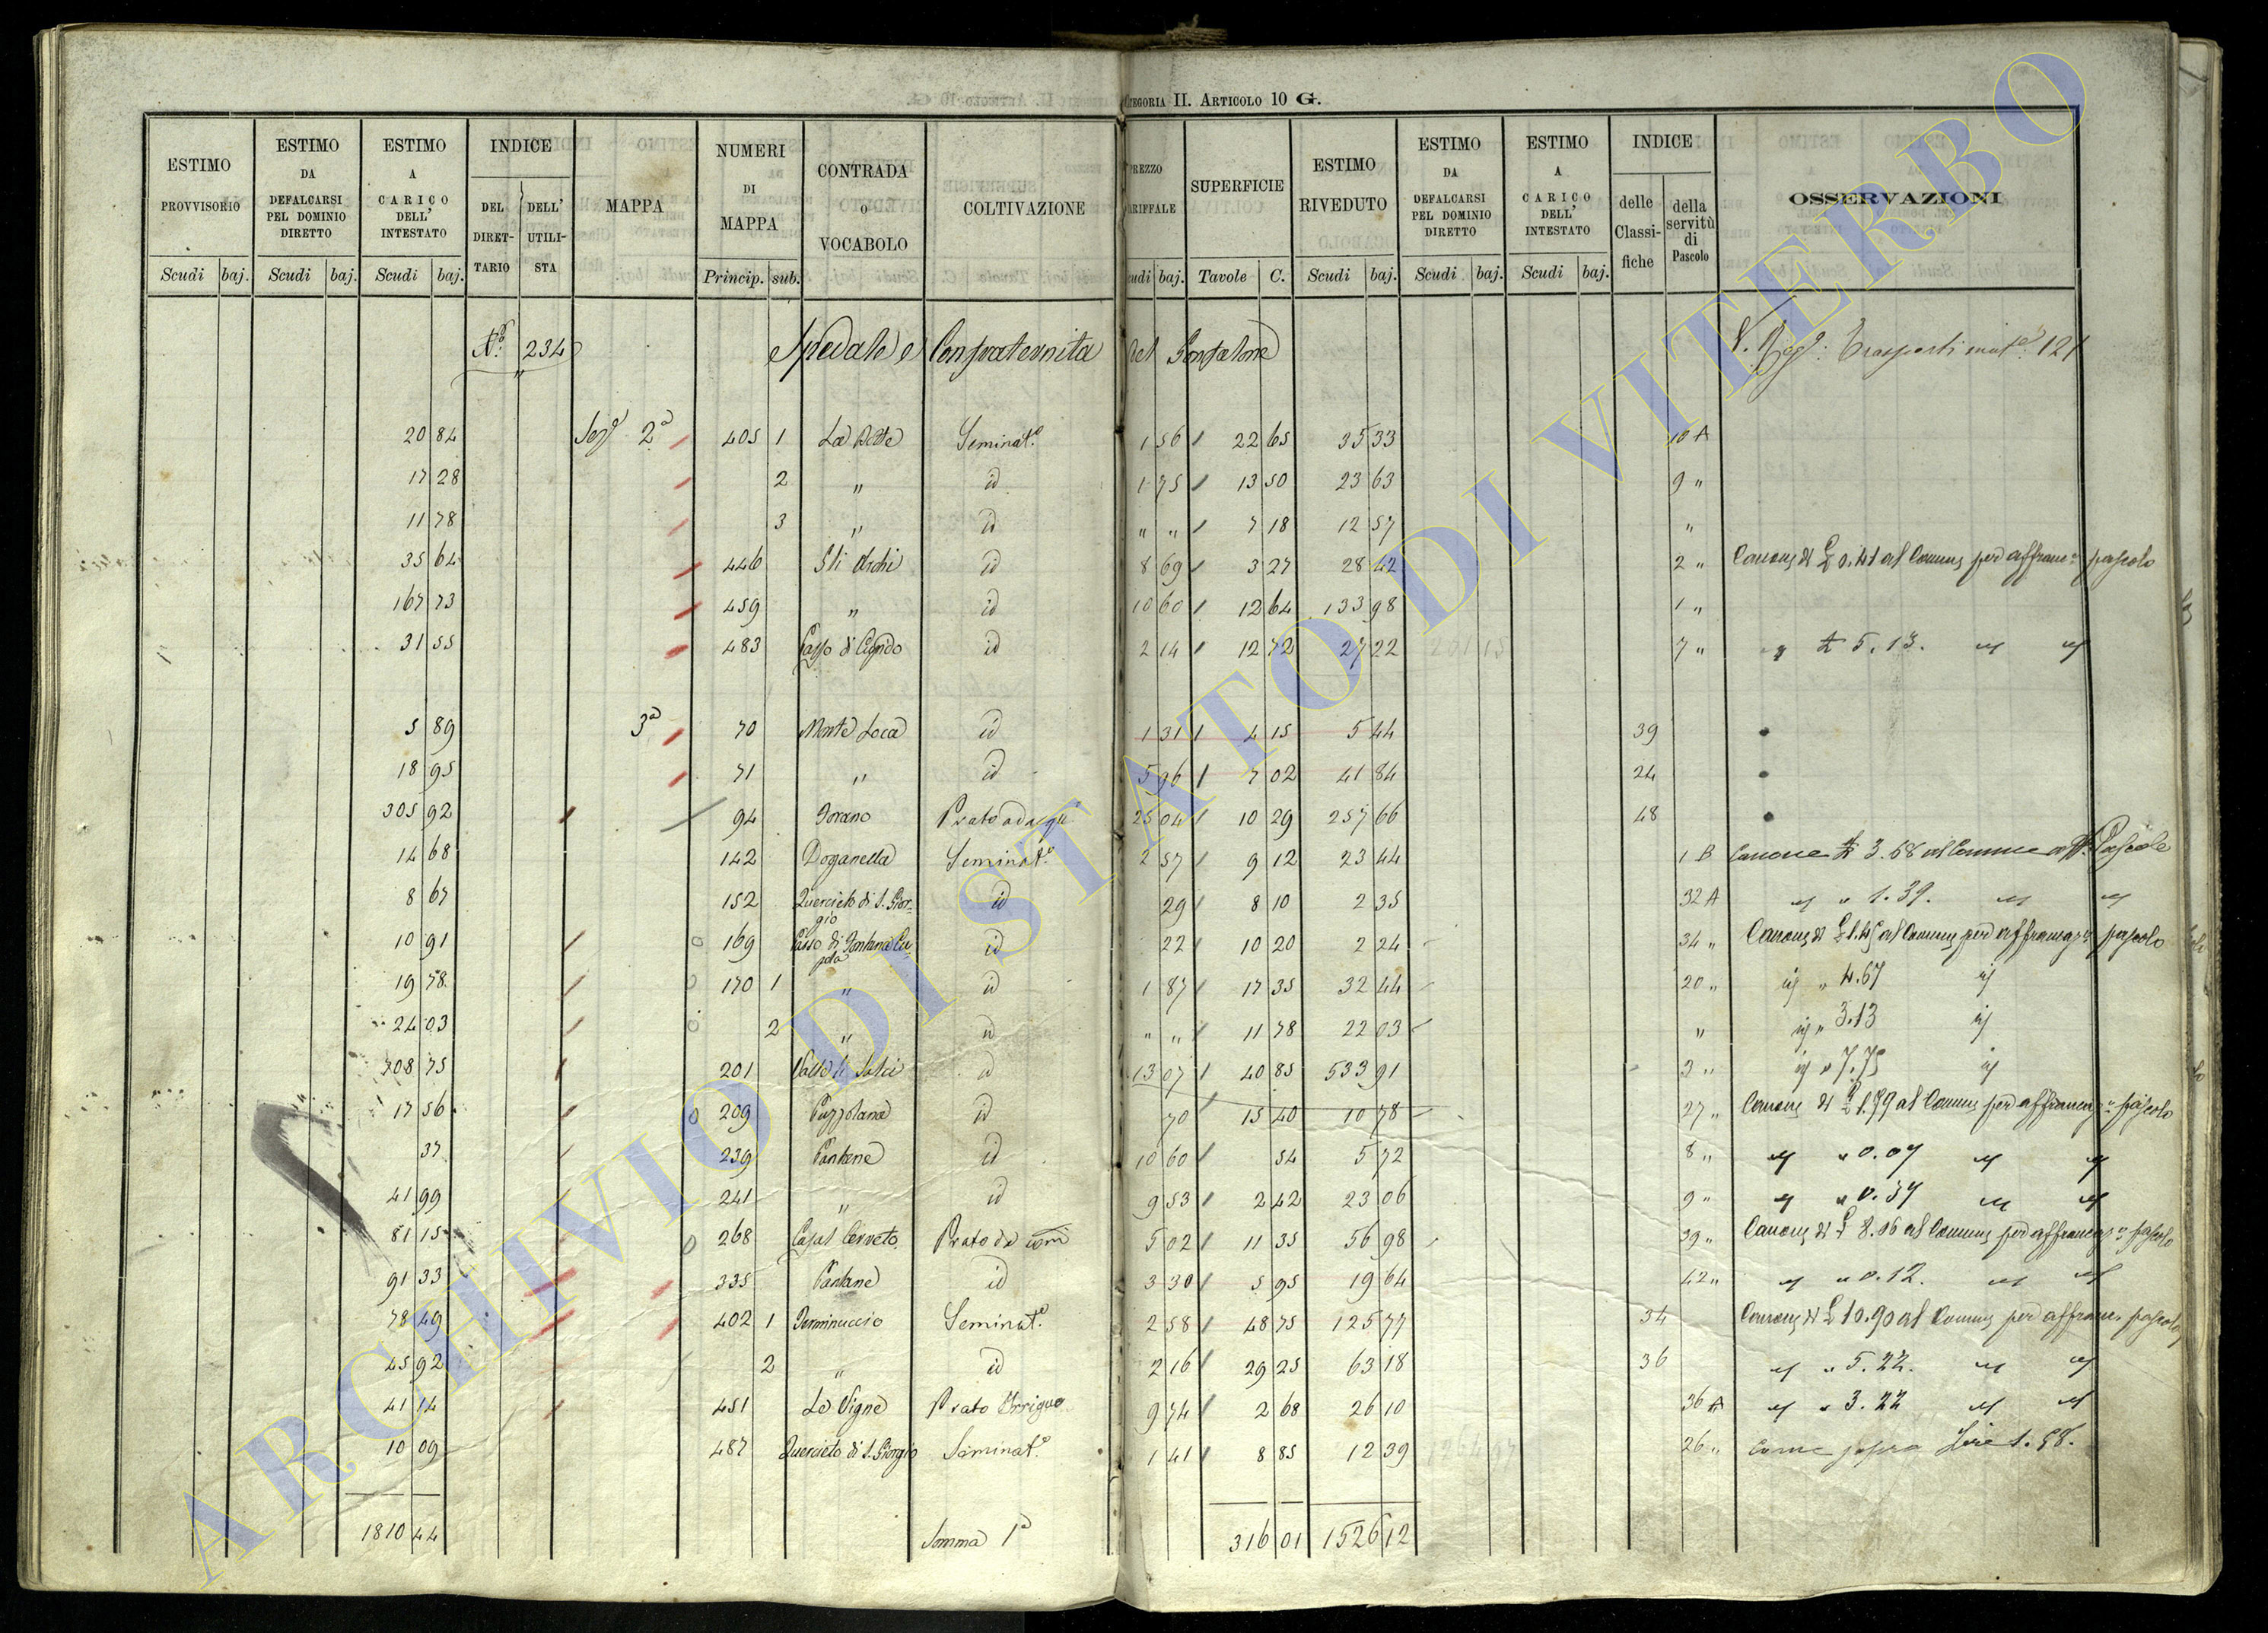 Categoria II. Articolo 10 G.
ESTIMO PROVVISORIO Scudi baj.
ESTIMO DA DEFALCARSI PEL DOMINIO DIRETTO Scudi baj.
ESTIMO A CARICO DELL' INTESTATO Scudi baj.
INDICE DEL DIRET-TARIO DELL' UTILI-STA
MAPPA
NUMERI DI MAPPA Princip. sub.
CONTRADA O VOCABOLO
COLTIVAZIONE
PREZZO TARIFFALE Scudi baj.
SUPERFICIE Tavole C.
ESTIMO RIVEDUTO Scudi baj.
ESTIMO DA DEFALCARSI PEL DOMINIO DIRETTO Scudi baj.
ESTIMO A CARICO DELL' INTESTATO Scudi baj.
INDICE delle Classi-fiche della servitù di Pascolo
OSSERVAZIONI
N.o 234 Spedale e Confraternita del Gonfalone
20 84 Sez.e 2a 405 1 Seminat.o 1 56 22 65 35 33 10 A
17 28 2 " id 1 75 13 50 23 63 9 "
11 78 3 " id " " 7 18 12 57 "
35 64 446 Gli Archi id 8 69 3 27 28 42 2 " Canone di £ 0.41 al Comune per affranc.e pascolo
167 73 459 " id 10 60 12 64 133 98 1 "
31 55 483 id 2 14 12 72 27 22 7 " £ 5.13.
5 89 3a 70 Monte id 1 31 4 15 5 44 39
18 95 71 " id 5 96 7 02 41 84 24
305 92 94 Prato adacqu 25 04 10 29 257 66 48
14 68 142 Doganella Seminat.o 2 57 9 12 23 44 1 B Canone £ 3.68 al Comune aff. Pascolo
8 67 152 Querceto di S. Giorgio id 29 8 10 2 35 32 A " 1.39.
10 91 169 Passo di Fontana Cupola id 22 10 20 2 24 34 " Canone di £ 1.45 al Comune per affrancaz.e pascolo
19 78 170 1 " id 1 87 17 35 32 44 20 " id " 4.67 id
24 03 2 " id " " 11 78 22 03 " id " 3.13 id
708 75 201 id 13 07 40 85 533 91 id " 7.75 id
17 56 209 Puzzolana id 70 15 40 10 78 27 " Canone di £ 1.79 al Comune per affrancaz.e pascolo
37 239 Pantane id 10 60 54 5 72 8 "
41 99 241 " id 9 53 2 42 23 06 9 "
81 15 268 Casal Cerveto Prato da 5 02 11 35 56 98 39 " Canone di £ 8.06 al Comune per affrancaz.e pascolo
91 33 335 Pantane id 3 30 5 95 19 64 42 " " 0.12.
78 49 402 1 Terminuccio Seminat.o 2 58 48 75 125 77 34 Canone di £ 10.90 al Comune per affranc. pascolo
45 92 2 " id 2 16 29 25 63 18 36 " 5.22.
41 14 451 Le Vigne Prato Irriguo 9 74 2 68 26 10 36 A " 3.22
10 09 487 Querceto di S. Giorgio Seminat.o 1 41 8 85 12 39 26 " Come sopra Lire 1.58.
1810 44 Somma 1a 316 01 1526 12
ARCHIVIO DI STATO DI VITERBO